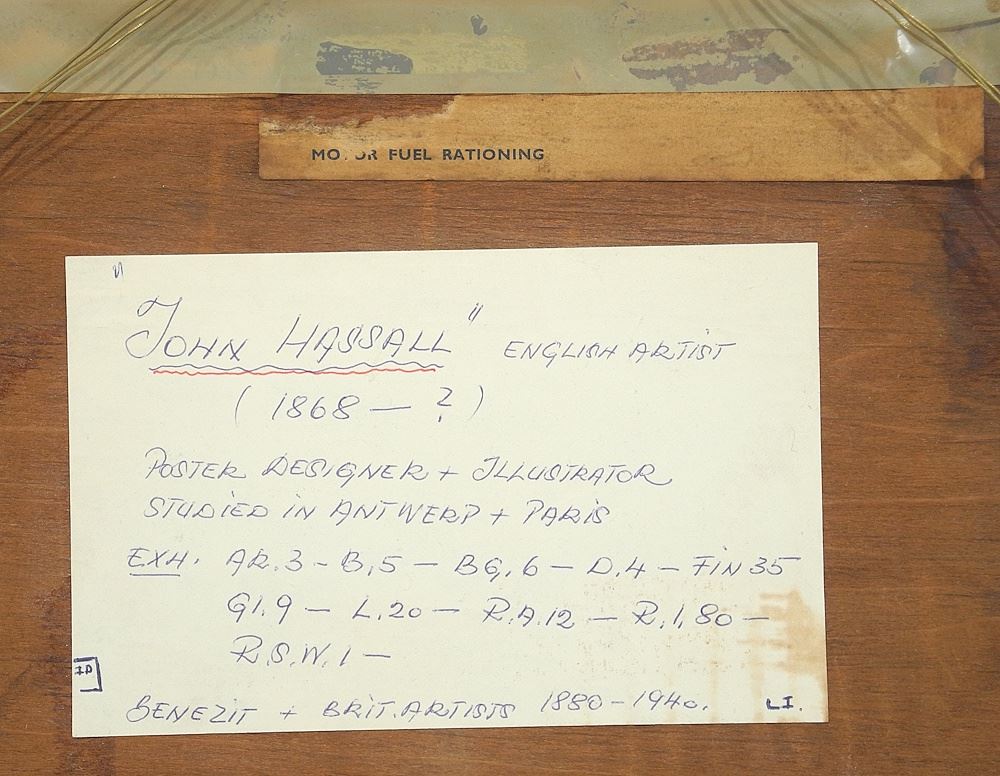 MO OR FUEL RATIONING
"JOHN HASSALL" ENGLISH ARTIST
( 1868 — ? )
POSTER DESIGNER + ILLUSTRATOR
STUDIED IN ANTWERP + PARIS
EXH. AR.3 - B.5 - BG.6 - D.4 - FIN 35
GI.9 - L.20 - R.A.12 - R.I.80 -
R.S.W.1 -
BENEZIT + BRIT. ARTISTS 1880-1940.
LI.